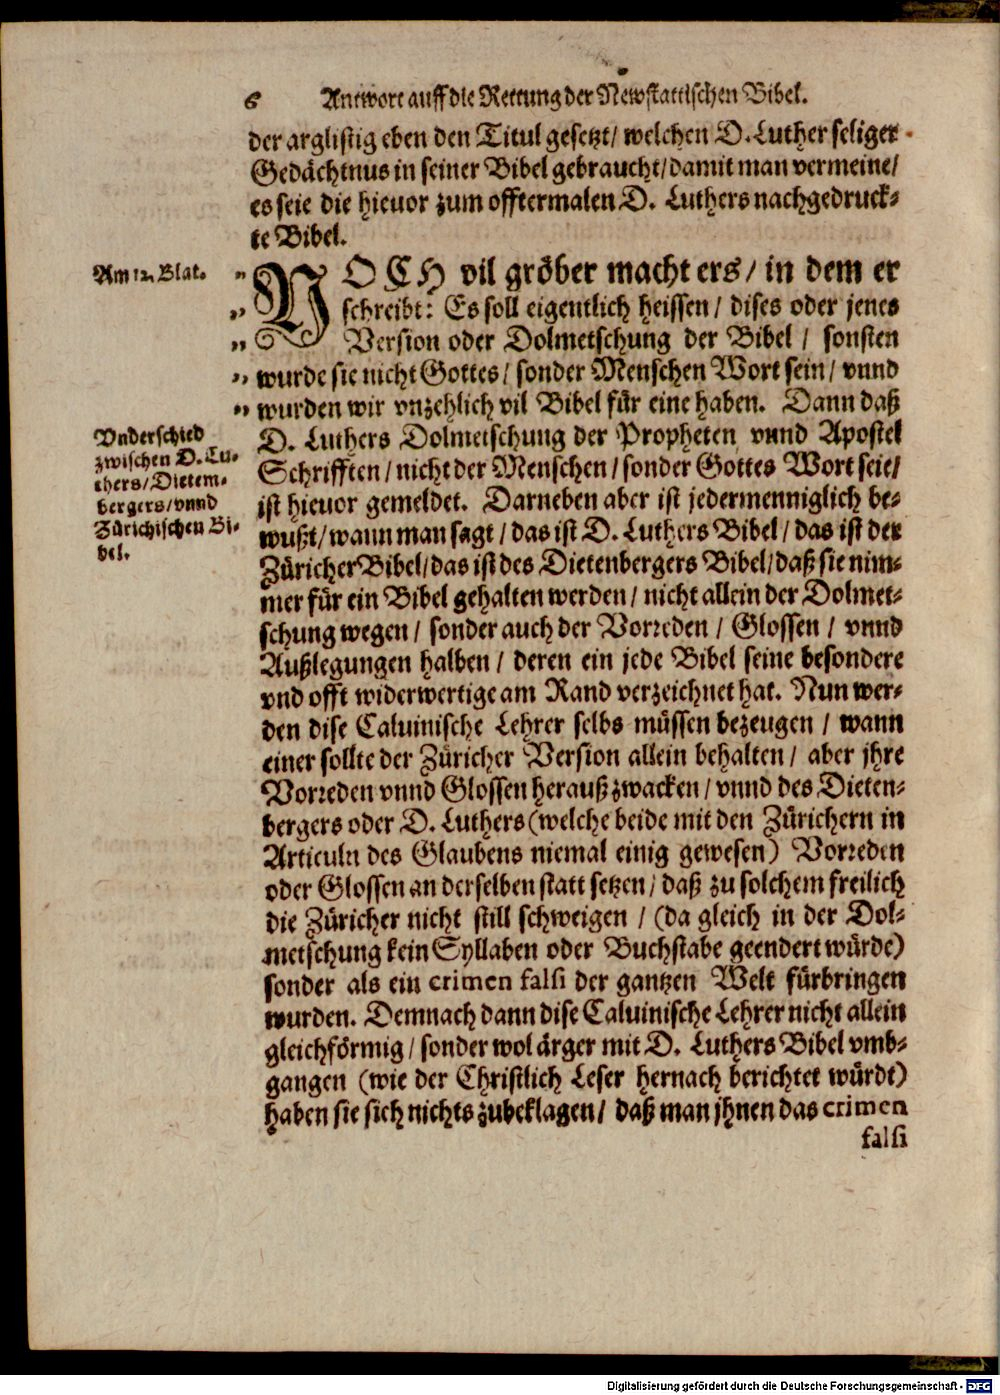 6 Antwort auff die Rettung der Newstattischen Bibel.
der arglistig eben den Titul gesetzt/ welchen D. Luther seliger
Gedächtnus in seiner Bibel gebraucht/ damit man vermeine/
es seie die hieuor zum offtermalen D. Luthers nachgedruck-
te Bibel.
Am 12. Blat.
NOCH vil gröber macht ers/ in dem er
schreibt: Es soll eigentlich heissen/ dises oder jenes
Version oder Dolmetschung der Bibel/ sonsten
wurde sie nicht Gottes/ sonder Menschen Wort sein/ vnnd
wurden wir vnzehlich vil Bibel für eine haben. Dann daß
Vnderschied
zwischen D. Lu-
thers/ Dietem-
bergers/ vnnd
Zürichischen Bi-
bel.
D. Luthers Dolmetschung der Propheten vnnd Apostel
Schrifften/ nicht der Menschen/ sonder Gottes Wort seie/
ist hieuor gemeldet. Darneben aber ist jedermenniglich be-
wußt/ wann man sagt/ das ist D. Luthers Bibel/ das ist der
Züricher Bibel/ das ist des Dietenbergers Bibel/ daß sie nim-
mer für ein Bibel gehalten werden/ nicht allein der Dolmet-
schung wegen/ sonder auch der Vorreden/ Glossen/ vnnd
Außlegungen halben/ deren ein jede Bibel seine besondere
vnd offt widerwertige am Rand verzeichnet hat. Nun wer-
den dise Caluinische Lehrer selbs müssen bezeugen/ wann
einer sollte der Züricher Version allein behalten/ aber jhre
Vorreden vnnd Glossen herauß zwacken/ vnnd des Dieten-
bergers oder D. Luthers (welche beide mit den Zürichern in
Articuln des Glaubens niemal einig gewesen) Vorreden
oder Glossen an derselben statt setzen/ daß zu solchem freilich
die Züricher nicht still schweigen/ (da gleich in der Dol-
metschung kein Syllaben oder Buchstabe geendert würde)
sonder als ein crimen falsi der gantzen Welt fürbringen
wurden. Demnach dann dise Caluinische Lehrer nicht allein
gleichförmig/ sonder wol ärger mit D. Luthers Bibel vmb-
gangen (wie der Christlich Leser hernach berichtet würdt)
haben sie sich nichts zubeklagen/ daß man jhnen das crimen
falsi
Digitalisierung gefördert durch die Deutsche Forschungsgemeinschaft - DFG